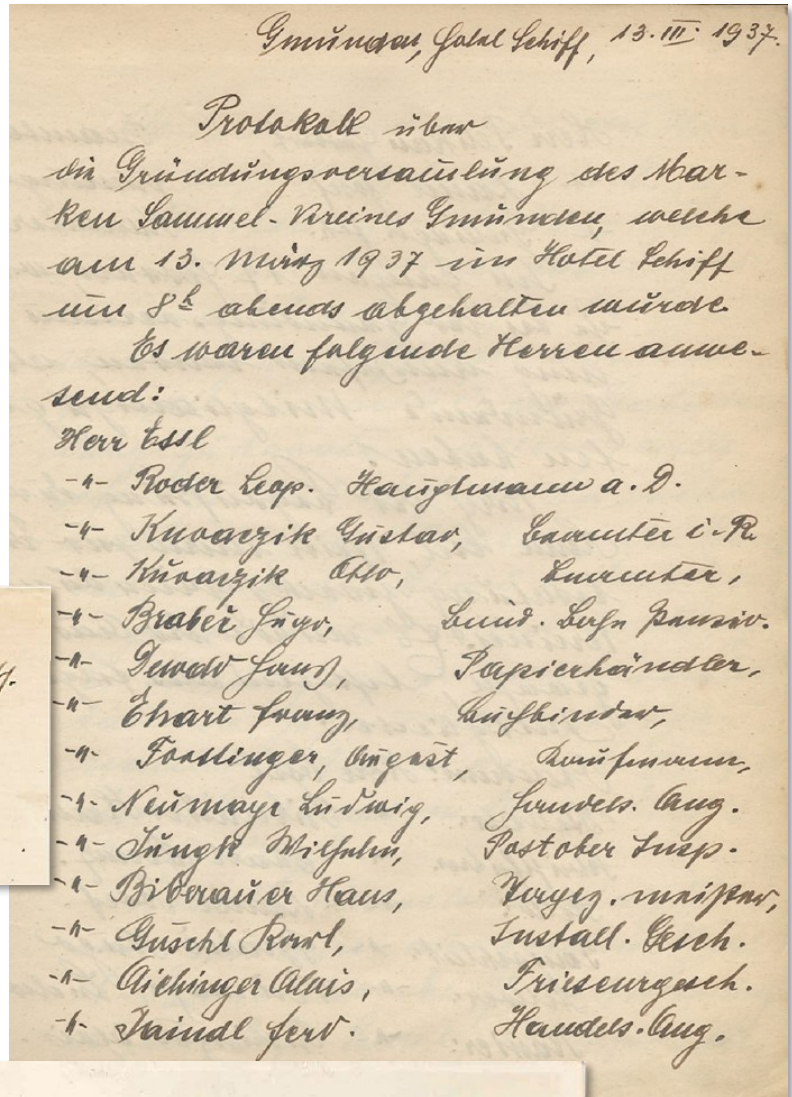 Gmunden, Hotel Schiff, 13. III. 1937.
Protokoll über
die Gründungsversam̄lung des Mar-
ken Sammel-Vereines Gmunden, welche
am 13. März 1937 im Hotel Schiff
um 8h abends abgehalten wurde.
Es waren folgende Herren anwe-
send:
Herr Essl
-"- Roder Leop. Hauptmann a. D.
-"- Kuvarzik Gustav, Beamter i. R.
-"- Kuvarzik Otto, Beamter,
-"- Brabeč Hugo, Bund. Bahn Pensio.
-"- Hans, Papierhändler,
-"- Ehart Franz, Buchbinder,
-"- Forstinger, August, Kaufmann,
-"- Neumayr Ludwig, Handels. Ang.
-"- Jungk Wilhelm, Postober Insp.
-"- Biberauer Hans, Tapez. meister,
-"- Guschl Karl, Install. Gesch.
-"- Aichinger Alois, Friseurgesch.
-"- Jaindl Ferd. Handels. Ang.